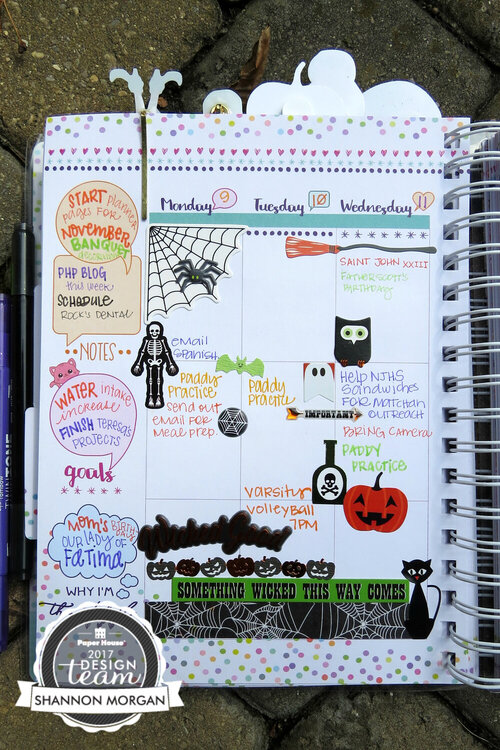 START planner
pages FOR
NOVEMBER
BANQUET
PHP BLOG
this week
SCHEDULE
ROCK'S DENTAL
NOTES
WATER intake
increase
FINISH Teresa's
PROJECTS
goals
Mom's BIRTHDAY
OUR LADY OF
FATIMA
WHY I'M
Monday 9
email
Spanish
Paddy
Practice
Send out
email for
meal prep
Tuesday 10
Paddy
Practice
Varsity
Volleyball
7PM
Wednesday 11
SAINT JOHN XXIII
FATHER SCOTT'S
BIRTHDAY
HELP NJHS
Sandwiches
FOR MATCHAN
OUTREACH
IMPORTANT
BRING CAMERA
PADDY
PRACTICE
Wicked Good
SOMETHING WICKED THIS WAY COMES
Paper House
2017
DESIGN
team
SHANNON MORGAN